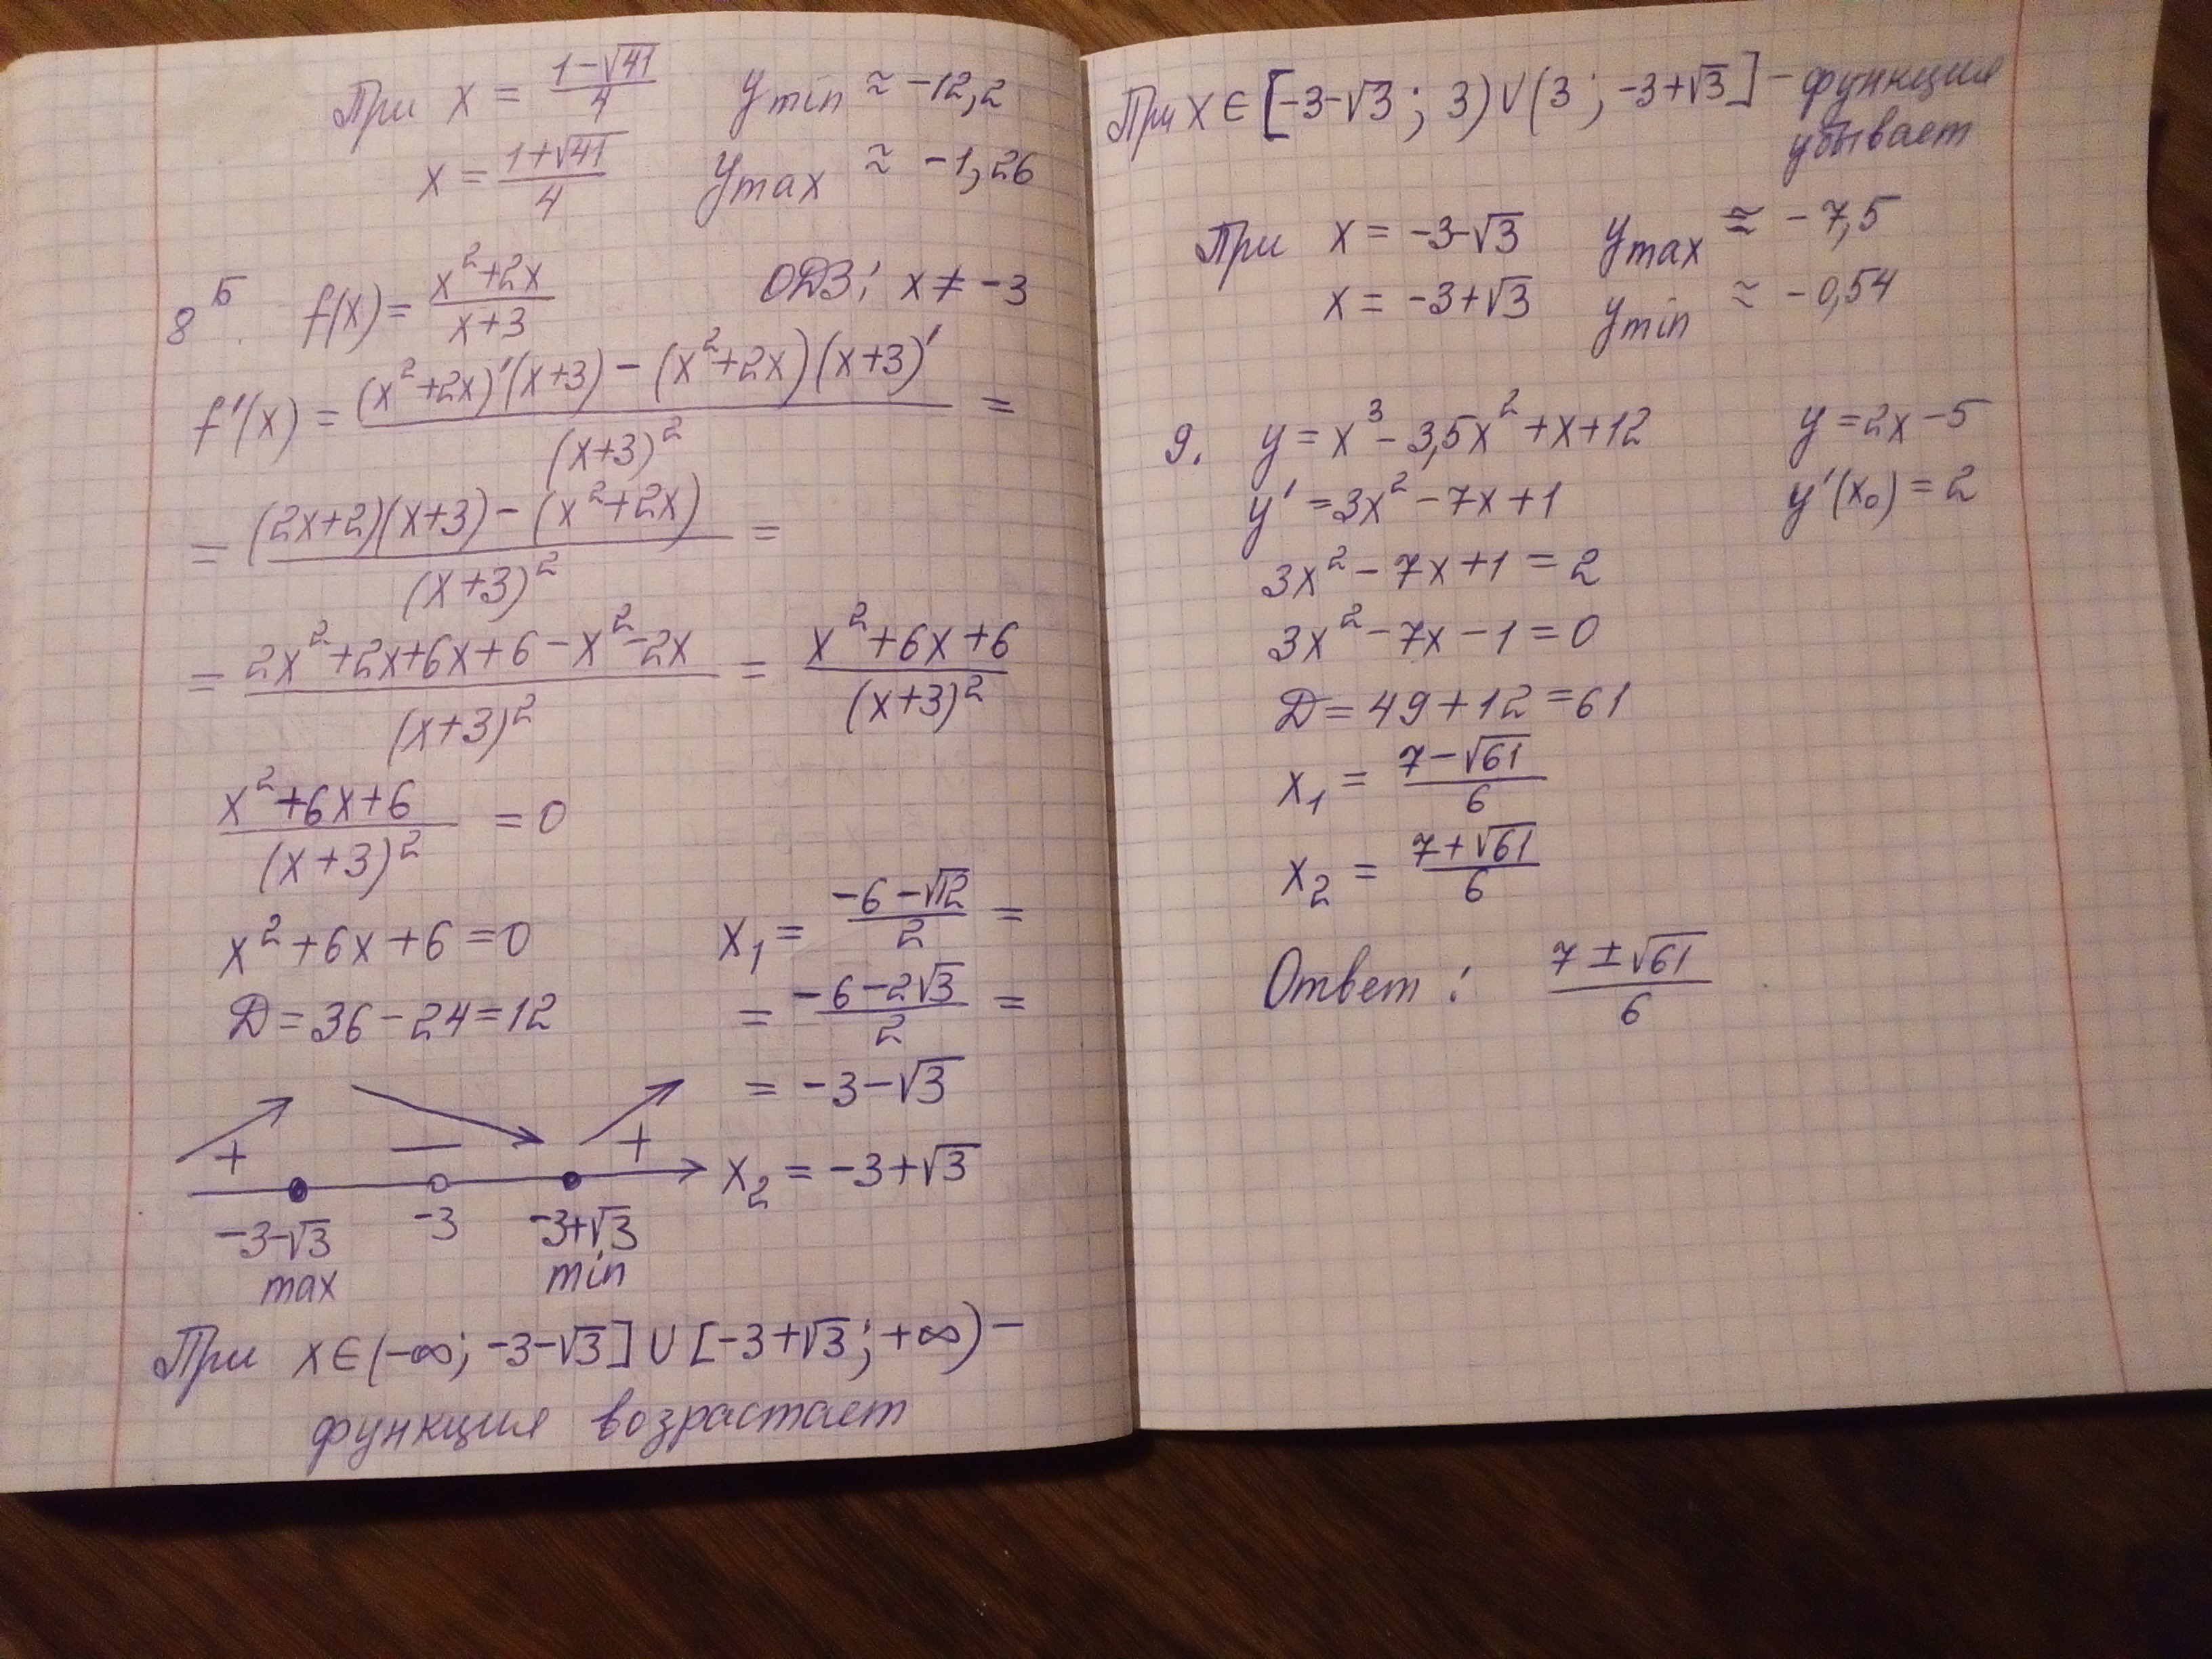 При x = (1-√41)/4 y min ≈ -12,2
x = (1+√41)/4 y max ≈ -1,26
8 Б. f(x) = (x²+2x)/(x+3) ОДЗ: x ≠ -3
f'(x) = ((x²+2x)'(x+3) - (x²+2x)(x+3)')/(x+3)² =
= ((2x+2)(x+3) - (x²+2x))/(x+3)² =
= (2x²+2x+6x+6-x²-2x)/(x+3)² = (x²+6x+6)/(x+3)²
(x²+6x+6)/(x+3)² = 0
x²+6x+6=0
D = 36-24=12
x₁ = (-6-√12)/2 =
= (-6-2√3)/2 =
= -3-√3
x₂ = -3+√3
+ — +
-3-√3 -3 -3+√3
max min
При x∈(-∞; -3-√3] ∪ [-3+√3; +∞) –
функция возрастает
При x ∈ [-3-√3; 3) ∪ (3; -3+√3] – функция
убывает
При x = -3-√3 y max ≈ -7,5
x = -3+√3 y min ≈ -0,54
9. y = x³ - 3,5x² + x + 12 y = 2x - 5
y' = 3x² - 7x + 1 y'(x₀) = 2
3x² - 7x + 1 = 2
3x² - 7x - 1 = 0
D = 49 + 12 = 61
x₁ = (7-√61)/6
x₂ = (7+√61)/6
Ответ: (7±√61)/6